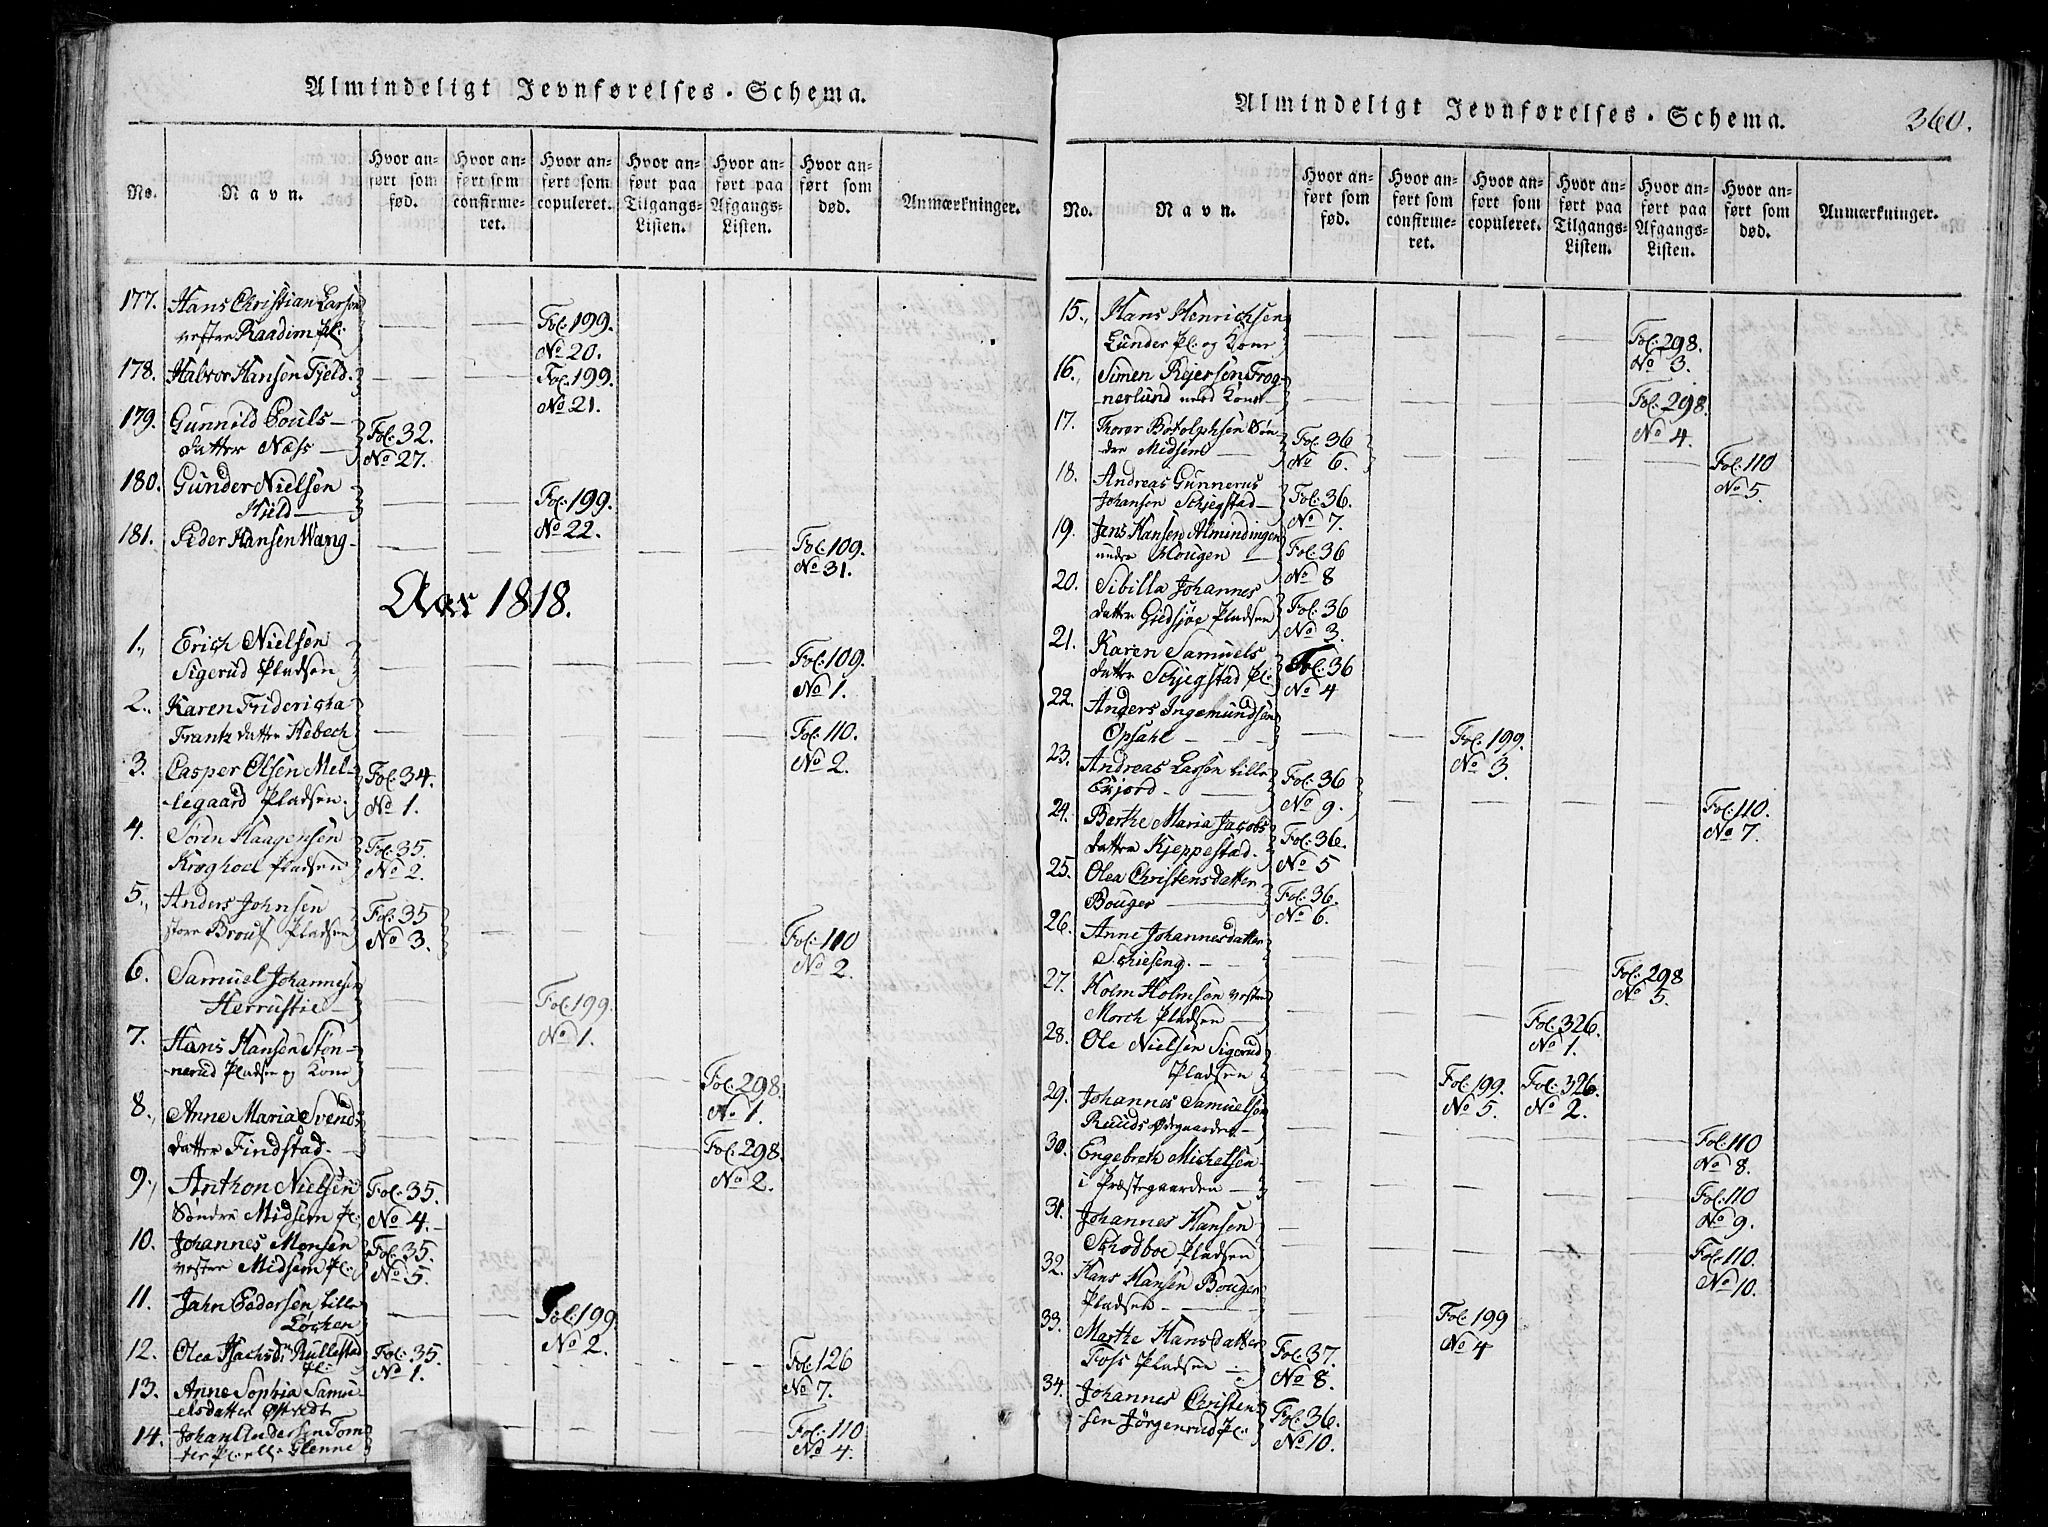 Almindeligt Jevnførelses-Schema.
No.
Navn.
Hvor an-
ført som
fød.
Hvor an-
ført som
confirme-
ret.
Hvor an-
ført som
copuleret.
Hvor an-
ført paa
Tilgangs-
Listen.
Hvor an-
ført paa
Afgangs-
Listen.
Hvor an-
ført som
død.
Anmærkninger.
177. Hans Christian Larsen
vestre Raadim Pl: Fol: 199.
No 20.
178. Halvor Hansen Fjeld. Fol: 199.
No 21.
179. Gunnild Pouls-
datter Næss Fol: 32.
No 27.
180. Gunder Nielsen
Hüld Fol: 199.
No 22.
181. Peder Hansen Wang Fol: 109.
No 31.
Aar 1818.
1. Erich Nielsen
Sigerud Pladsen Fol: 109.
No 1.
2. Karen Fridericha
Frantz datter Hebech Fol: 110.
No 2.
3. Casper Olsen Mel- Fol: 34.
legaard Pladsen. No 1.
4. Søren Haagensen Fol: 35.
Kroghoel Pladsen No 2.
5. Anders Johnsen Fol: 35
store Brous Pladsen No 3. Fol: 110
No 2.
6. Samuel Johannesen
Herrustie Fol: 199
No 1.
7. Hans Hansen Støn-
nerud Pladsen og Kone Fol: 298.
No 1.
8. Anne Maria Svends
datter Findstad. Fol: 298.
No 2.
9. Anthon Nielsen Fol: 35.
Søndre Midsem Pl: No 4.
10. Johannes Monsen Fol: 35.
vestre Midsem Pl: No 5.
11. Jahn Pedersen Lille
Løchen Fol: 199
No 2.
12. Olea Isachsdr Rullestad Fol: 35. Fol: 126
Pl: No 1. No 7.
13. Anne Sophia Samu-
elsdatter Østvedt Fol: 110
14. Johan Andersen Tom-
ter Pl: ell: Glenne No 4.
Almindeligt Jevnførelses-Schema. 360.
No.
Navn.
Hvor an-
ført som
fød.
Hvor an-
ført som
confirme-
ret.
Hvor an-
ført som
copuleret.
Hvor an-
ført paa
Tilgangs-
Listen.
Hvor an-
ført paa
Afgangs-
Listen.
Hvor an-
ført som
død.
Anmærkninger.
15. Hans Henrichsen
Lunder Pl: og Kone Fol: 298.
No 3.
16. Simen Rejersen Frog-
nerlund med Kone Fol: 298.
No 4.
17. Thorer Botolphsen Søn- Fol: 36
dre Midsem No 6. Fol: 110
No 5.
18. Andreas Gunnerus
Johansen Schjegstad Fol: 36.
No 7.
19. Jens Hansen Almindingen Fol: 36
under Hougen No 8
20. Sibilla Johannes
datter Gidsjøe Pladsen Fol: 36
No 3.
21. Karen Samuels
datter Schjegstad Pl: Fol: 36
No 4
22. Anders Ingemundsen
Opsahl Fol: 199.
No 3.
23. Andreas Larsen Lille Fol: 36
Exjord No 9. Fol: 110.
No 7.
24. Berthe Maria Jacobs Fol: 36.
datter Kjeppestad. No 5
25. Olea Christensdatter Fol: 36.
Bouger No 6.
26. Anne Johannesdatter
Schieseng. Fol: 298
No 5.
27. Holm Holmsen vestre
Morch Pladsen Fol: 326.
No 1.
28. Ole Nielsen Sigerud
Pladsen Fol: 199. Fol: 326.
No 5. No 2.
29. Johannes Samuelsen
Ruuds Ødegaarden Fol: 110
No 8.
30. Engebreth Michelsen
i Præstegaarden Fol: 110
No 9.
31. Johannes Hansen
Schodboe Pladsen Fol: 110.
No 10.
32. Hans Hansen Bouger
Pladsen Fol: 199
No 4
33. Marthe Hansdatter Fol: 37.
Foss Pladsen No 8.
34. Johannes Christen- Fol: 36.
sen Jörgenrud Pl: No 10.